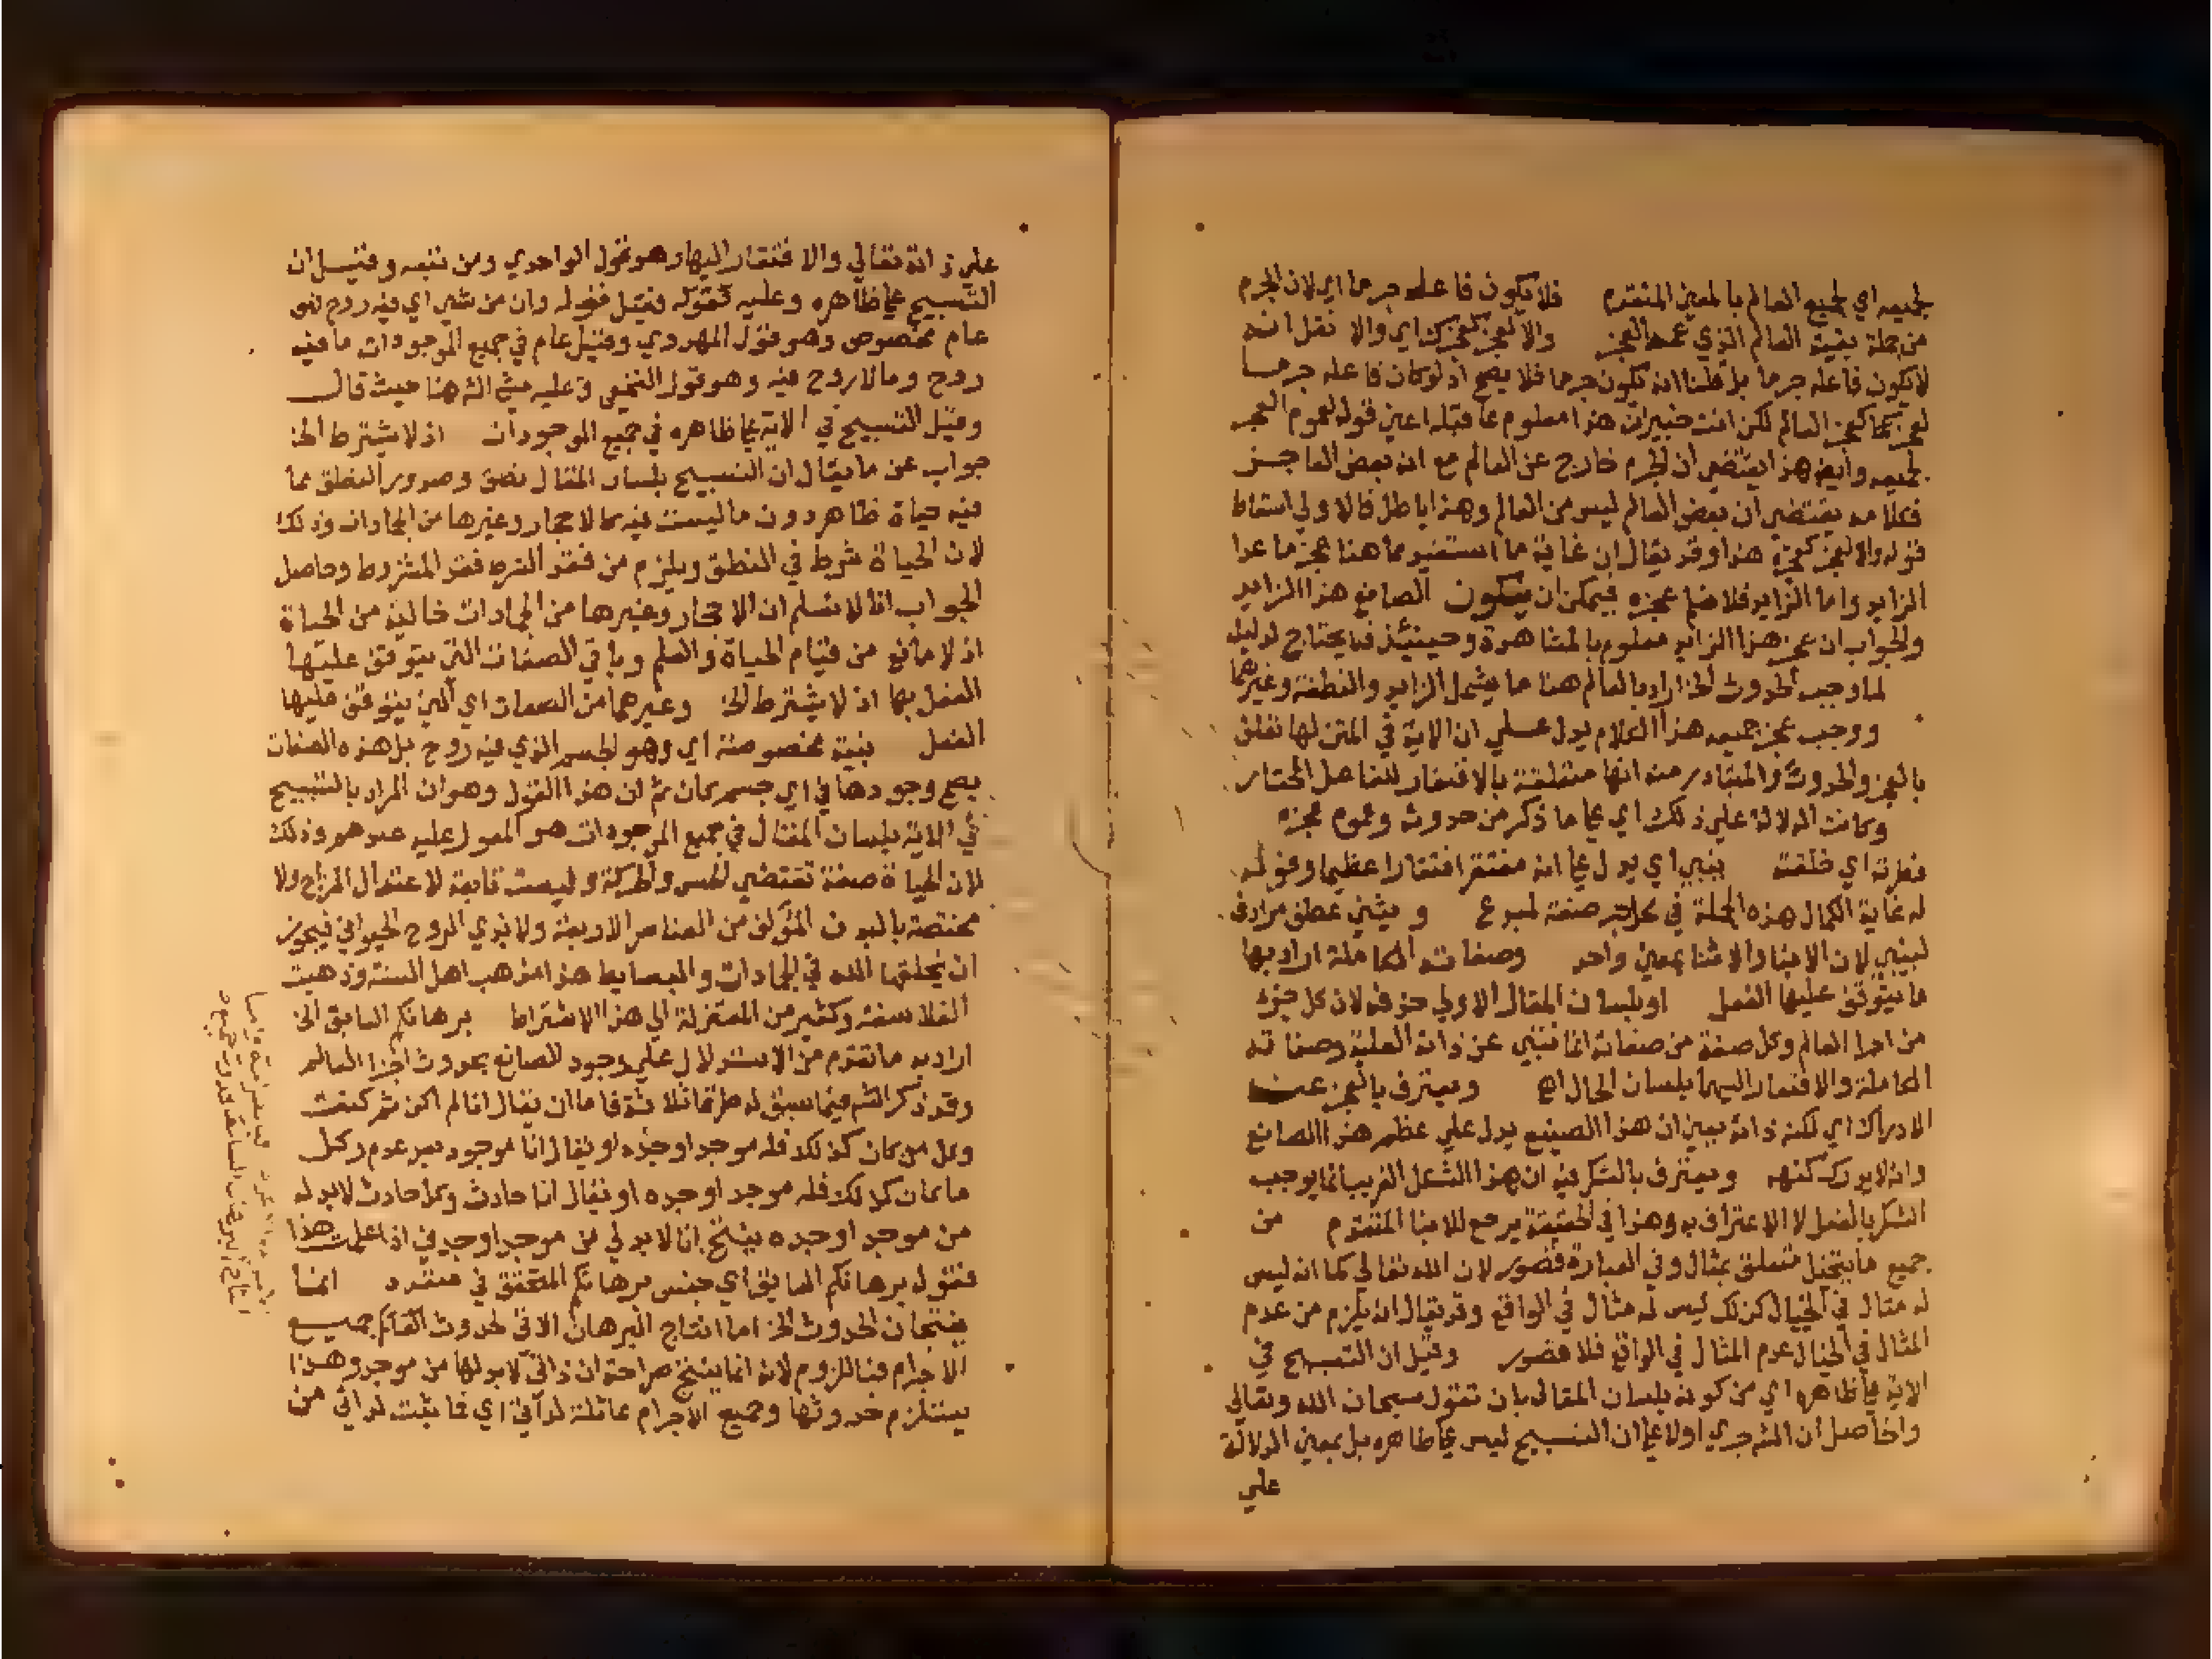 لجميعه اي لجميع العالم بالمعني المتقدم فلا يكون فاعله جرما اي لان الجرم
من جملة بقية العالم الذي عمه العجز والا لعجز كعجزك اي والا نقل انه
لا يكون فاعله جرما بل قلنا انه يكون جرما فلا يصح اذ لو كان فاعله جرما
لعجز كما عجز العالم لكن انت خبير ان هذا معلوم مما قبله اعني قوله لعموم العجز
لجميعه وايضا هذا يقتضي ان الجرم خارج عن العالم مع انه بعض العاجز
فكلامه يقتضي ان بعض العالم ليس من العالم وهذا باطل فالاولي اسقاط
قوله والا لعجز كعجزه هذا وقد يقال ان غاية ما استفيد مما هنا عجز ما عدا
الزايد واما الزايد فلا عجزه فيمكن ان يكون الصانع هذا الزايد
والجواب ان عجز هذا الزايد معلوم بالمشاهدة وحينئذ فلا يحتاج لدليل
لما وجب الحدوث الخ اراد بالعالم هنا ما يشمل الزايد والنطفة وغيرهما
ووجب عجز جميعه هذا الكلام يدل علي ان الاية في المتن لها تعلق
بالعجز والحدوث والمتبادر منه انها متعلقة بالافتقار للفاعل المختار
وكانت الدلالة علي ذلك اي علي ما ذكر من حدوثه وعموم عجزه
فطرته اي خلقته ينبي اي يدل علي انه مفتقر افتقارا عظيما وقوله
له غاية الكمال هذه الجملة في محل جر صفة لمبدع ويثني عطف مرادف
لينبي لان الانباء والاثنا بمعني واحد وصفاته الكاملة اراد بها
ما يتوقف عليها الفعل او بلسان المقال الاولي حذفه لان كل جزء
من اجزا العالم وكل صفة من صفاته انما تنبي عن ذاته العلية وصفاته
الكاملة والافتقار اليها بلسان الحال اه ويعترف بالعجز عن
الادراك اي لكنه ذاته يبين ان هذا الصنيع يدل علي عظم هذا الصانع
وانه لا يدرك كنهه ويعترف بالشكر فيه ان هذا الشكل الغريب انما يوجب
الشكر بالفعل لا الاعتراف به وهذا في الحقيقة يرجع للانبا المتقدم من
جميع ما يتخيل متعلق بمثال وفي العبارة قصور لان الله تعالي كما انه ليس
له مثال في الخيال كذلك ليس له مثال في الواقع وقد يقال انه يلزم من عدم
المثال في الخيال عدم المثال في الواقع فلا قصور وقيل ان التسبيح في
الاية علي ظاهره اي من كونه بلسان المقال بان تقول سبحان الله وتعالي
والحاصل ان الشه جري اولا علي ان التسبيح ليس علي ظاهره بل بمعني الدلالة
علي
علي ذاته تعالي والافتقار اليها وهو قول الواحدي ومن تبعه وقيل ان
التسبيح علي ظاهره وعليه فقوله وقيل فقوله وان من شي اي فيه روح فهو
عام مخصوص وهو قول المهدوي وقيل عام في جميع الموجودات ما فيه
روح وما لا روح فيه وهو قول النخعي وعليه مشي الشه هنا حيث قال
وقيل التسبيح في الاية علي ظاهره في جميع الموجودات اذ لا يشترط الخ
جواب عن ما يقال ان التسبيح بلسان المقال نطق وصدور النطق مما
فيه حياة ظاهر دون ما ليست فيه كالاحجار وغيرها من الجمادات وذلك
لان الحياة شرط في النطق ويلزم من فقد الشرط فقد المشروط وحاصل
الجواب انا لا نسلم ان الاحجار وغيرها من الجمادات خالية من الحياة
اذ لا مانع من قيام الحياة والعلم وباقي الصفات التي يتوقف عليها
الفعل بها اذ لا يشترط الخ وغيرهما من الصفات اي التي يتوقف عليها
الفعل بنية مخصوصة اي وهو الجسم الذي فيه روح بل هذه الصفات
يصح وجودها في اي جسم كان ثم ان هذا القول وهو ان المراد بالتسبيح
في الاية بلسان المقال في جميع الموجودات هو المعول عليه عندهم وذلك
لان الحياة صفة تقتضي الحس والحركة وليست تابعة لاعتدال المزاج ولا
مختصة بالبدن المؤلف من العناصر الاربعة ولا بذي الروح الحيواني فيجوز
ان يخلقها الله في الجمادات والبسايط هذا مذهب اهل السنة وذهبت
الفلاسفة وكثير من المعتزلة الي هذا الاشتراط برهانكم السابق الخ
اراد به ما تقدم من الاستدلال علي وجود الصانع بحدوث اجزا العالم
وقد ذكر الشه فيما سبق له طرقا ثلاثة فاما ان يقال انا لم اكن ثم كنت
وكل من كان كذلك فله موجد اوجده او يقال انا موجود بعد عدم وكل
ما كان كذلك فله موجد اوجده او يقال انا حادث وكل حادث لابد له
من موجد اوجده ينتج انا لابد لي من موجد اوجدني اذا علمت هذا
فنقول برهانكم السابق اي جنس برهانكم المتحقق في متعدد انما
ينتجان الحدوث الخ اما انتاج البرهان الاتي لحدوث العالم جميع
الاجرام فباللزوم لانه انما ينتج صراحة ان ذاتي لابد لها من موجد وهذا
يستلزم حدوثها وجميع الاجرام مماثلة لذاتي اي فما يثبت لذاتي من